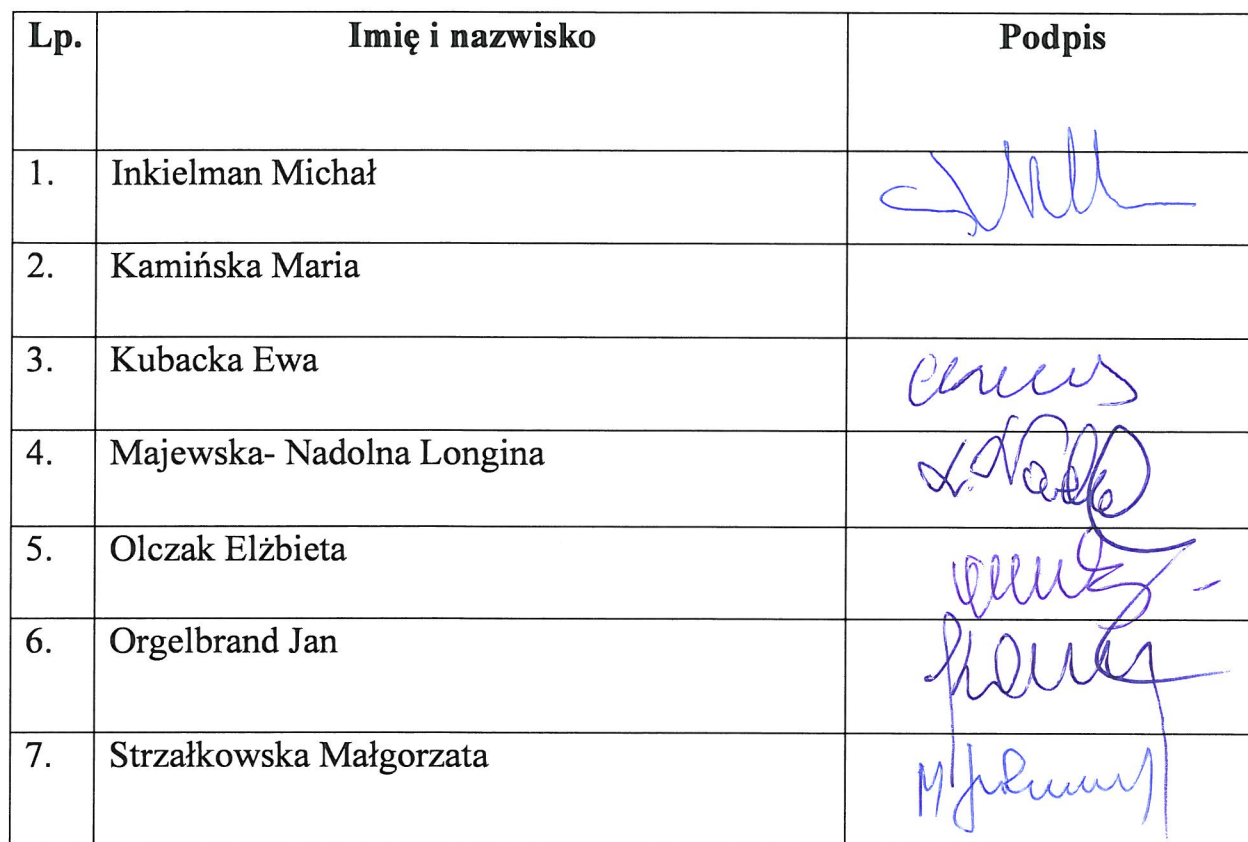 Lp. Imię i nazwisko Podpis
1. Inkielman Michał
2. Kamińska Maria
3. Kubacka Ewa
4. Majewska- Nadolna Longina
5. Olczak Elżbieta
6. Orgelbrand Jan
7. Strzałkowska Małgorzata